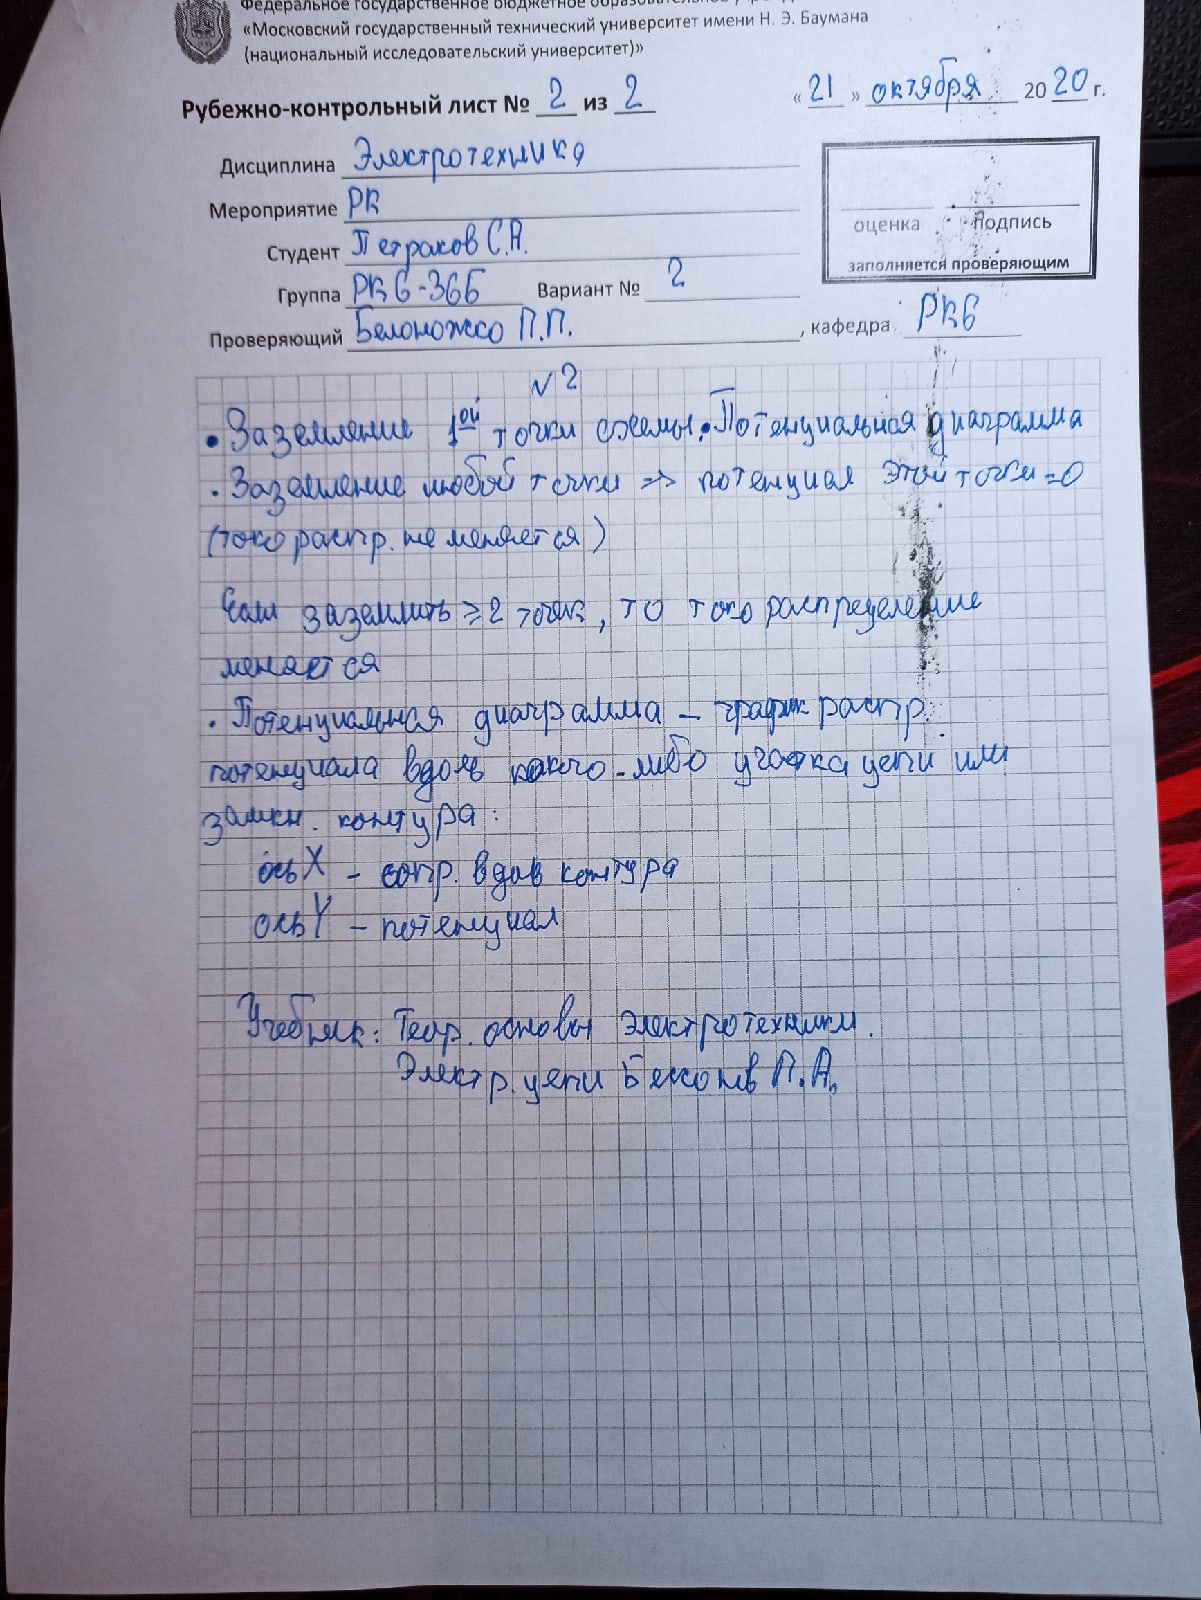 Федеральное государственное бюджетное
«Московский государственный технический университет имени Н. Э. Баумана
(национальный исследовательский университет)»
Рубежно-контрольный лист № 2 из 2 « 21 » октября 20 20 г.
Дисциплина Электротехника
Мероприятие РК
Студент Петраков С.А.
Группа РК6-36Б Вариант № 2
Проверяющий Беломожко П.П. , кафедра РК6
оценка подпись
заполняется проверяющим
№ 2
• Заземление 1ой точки схемы. • Потенциальная диаграмма
• Заземление любой точки => потенциал этой точки =0
(токораспр. не меняется)
Если заземлить ≥ 2 точек, то токораспределение
меняется
• Потенциальная диаграмма – график распр.
потенциала вдоль какого-либо участка цепи или
замкн. контура:
ось X – сопр. вдоль контура
ось Y – потенциал
Учебник: Теор. основы электротехники.
Электр. цепи Бессонов Л.А.